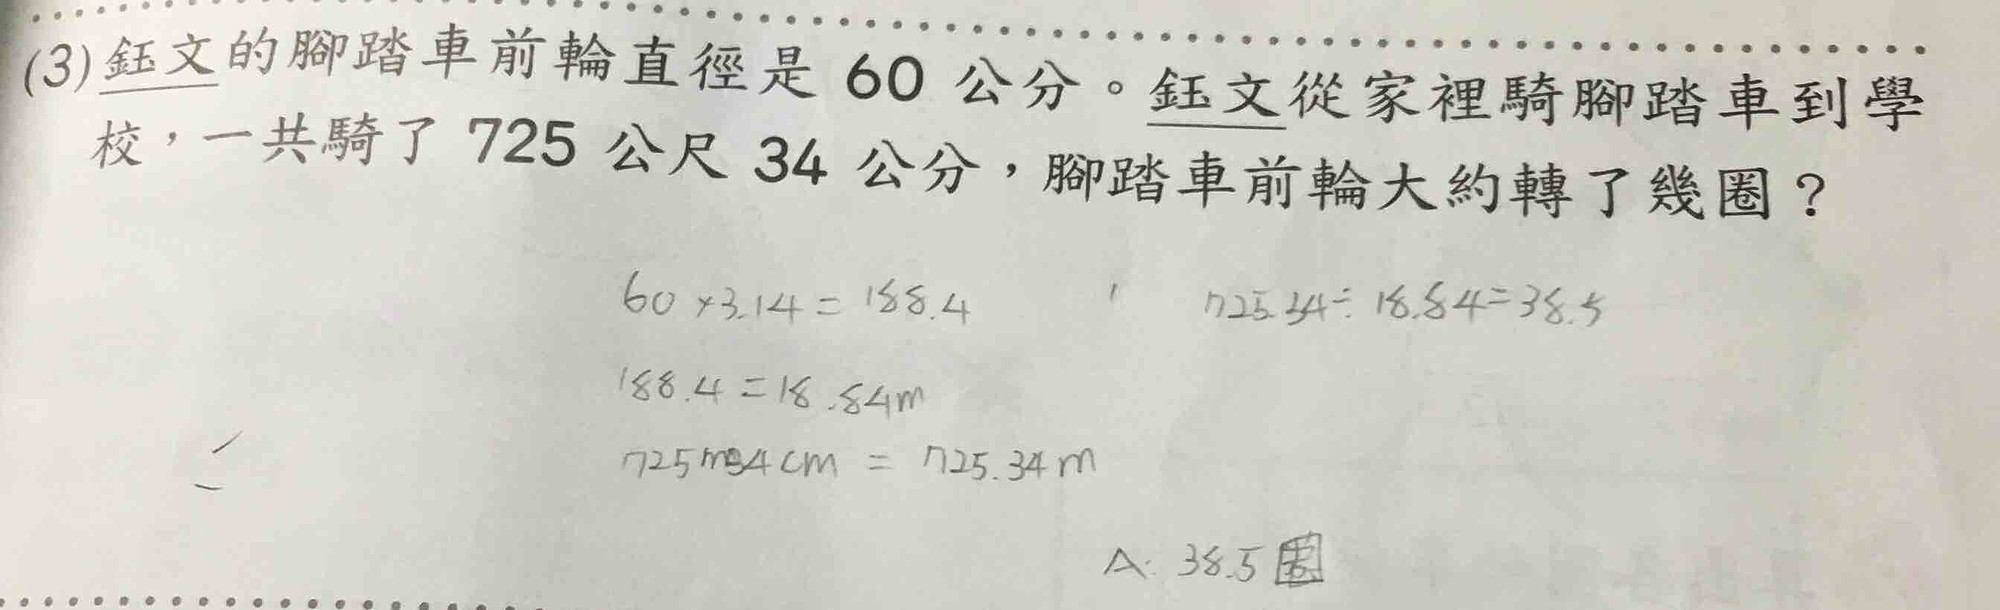 (3)鈺文的腳踏車前輪直徑是 60 公分。鈺文從家裡騎腳踏車到學
校，一共騎了 725 公尺 34 公分，腳踏車前輪大約轉了幾圈？
60×3.14=188.4
725.34÷18.84=38.5
188.4=18.84m
725m34cm=725.34m
A: 38.5圈